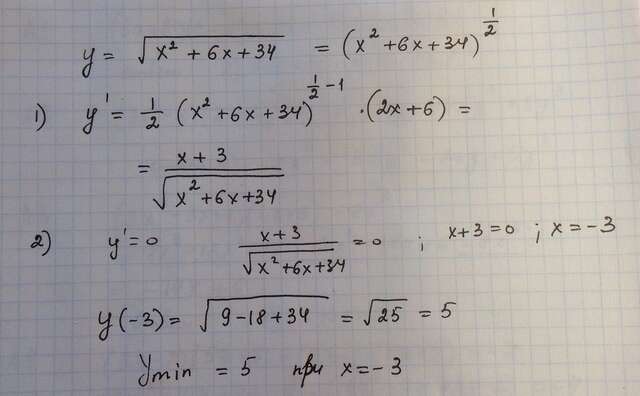 y = √(x² + 6x + 34) = (x² + 6x + 34)^(1/2)
1) y' = 1/2 (x² + 6x + 34)^(1/2 - 1) · (2x + 6) =
= (x + 3)/√(x² + 6x + 34)
2) y' = 0 (x + 3)/√(x² + 6x + 34) = 0 ; x + 3 = 0 ; x = -3
y(-3) = √(9 - 18 + 34) = √25 = 5
y min = 5 при x = -3